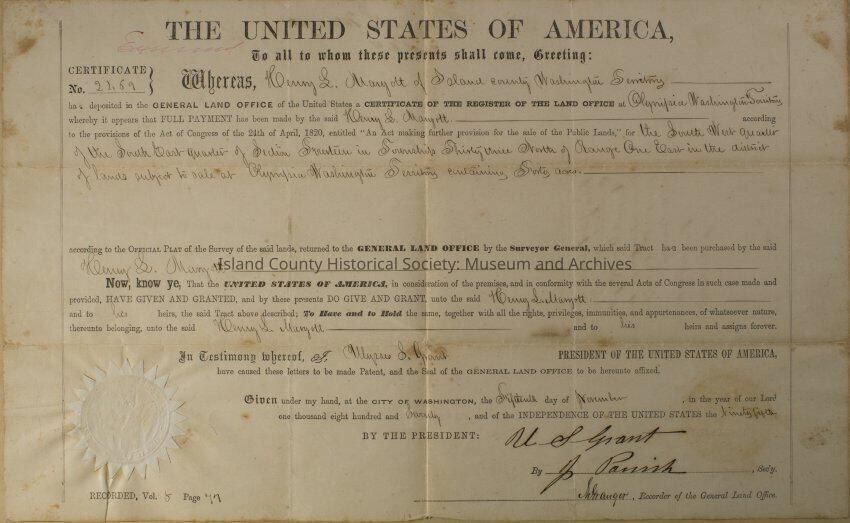 THE UNITED STATES OF AMERICA,
To all to whom these presents shall come, Greeting:
CERTIFICATE
No. 2169
Whereas, Henry L. Maryott of Island county Washington Territory
has deposited in the GENERAL LAND OFFICE of the United States a CERTIFICATE OF THE REGISTER OF THE LAND OFFICE at Olympia Washington Territory
whereby it appears that FULL PAYMENT has been made by the said Henry L. Maryott according
to the provisions of the Act of Congress of the 24th of April, 1820, entitled "An Act making further provision for the sale of the Public Lands," for the South West quarter
of the South East quarter of Section in Township North of Range One East in the district
of lands subject to sale at Olympia Washington Territory containing Forty acres.
according to the OFFICIAL PLAT of the Survey of the said lands, returned to the GENERAL LAND OFFICE by the Surveyor General, which said Tract has been purchased by the said
Henry L. Maryott
Island County Historical Society: Museum and Archives
Now, know ye, That the UNITED STATES OF AMERICA, in consideration of the premises, and in conformity with the several Acts of Congress in such case made and
provided, HAVE GIVEN AND GRANTED, and by these presents DO GIVE AND GRANT, unto the said Henry L. Maryott
and to his heirs, the said Tract above described; To Have and to Hold the same, together with all the rights, privileges, immunities, and appurtenances, of whatsoever nature,
thereunto belonging, unto the said Henry L. Maryott and to his heirs and assigns forever.
In Testimony whereof, I, Ulysses S. Grant PRESIDENT OF THE UNITED STATES OF AMERICA,
have caused these letters to be made Patent, and the Seal of the GENERAL LAND OFFICE to be hereunto affixed.
Given under my hand, at the CITY OF WASHINGTON, the Fifteenth day of November, in the year of our Lord
one thousand eight hundred and Seventy, and of the INDEPENDENCE OF THE UNITED STATES the Ninety fifth
BY THE PRESIDENT: U S Grant
By J Parrish, Sec'y.
RECORDED, Vol. 5 Page 77
Granger, Recorder of the General Land Office.